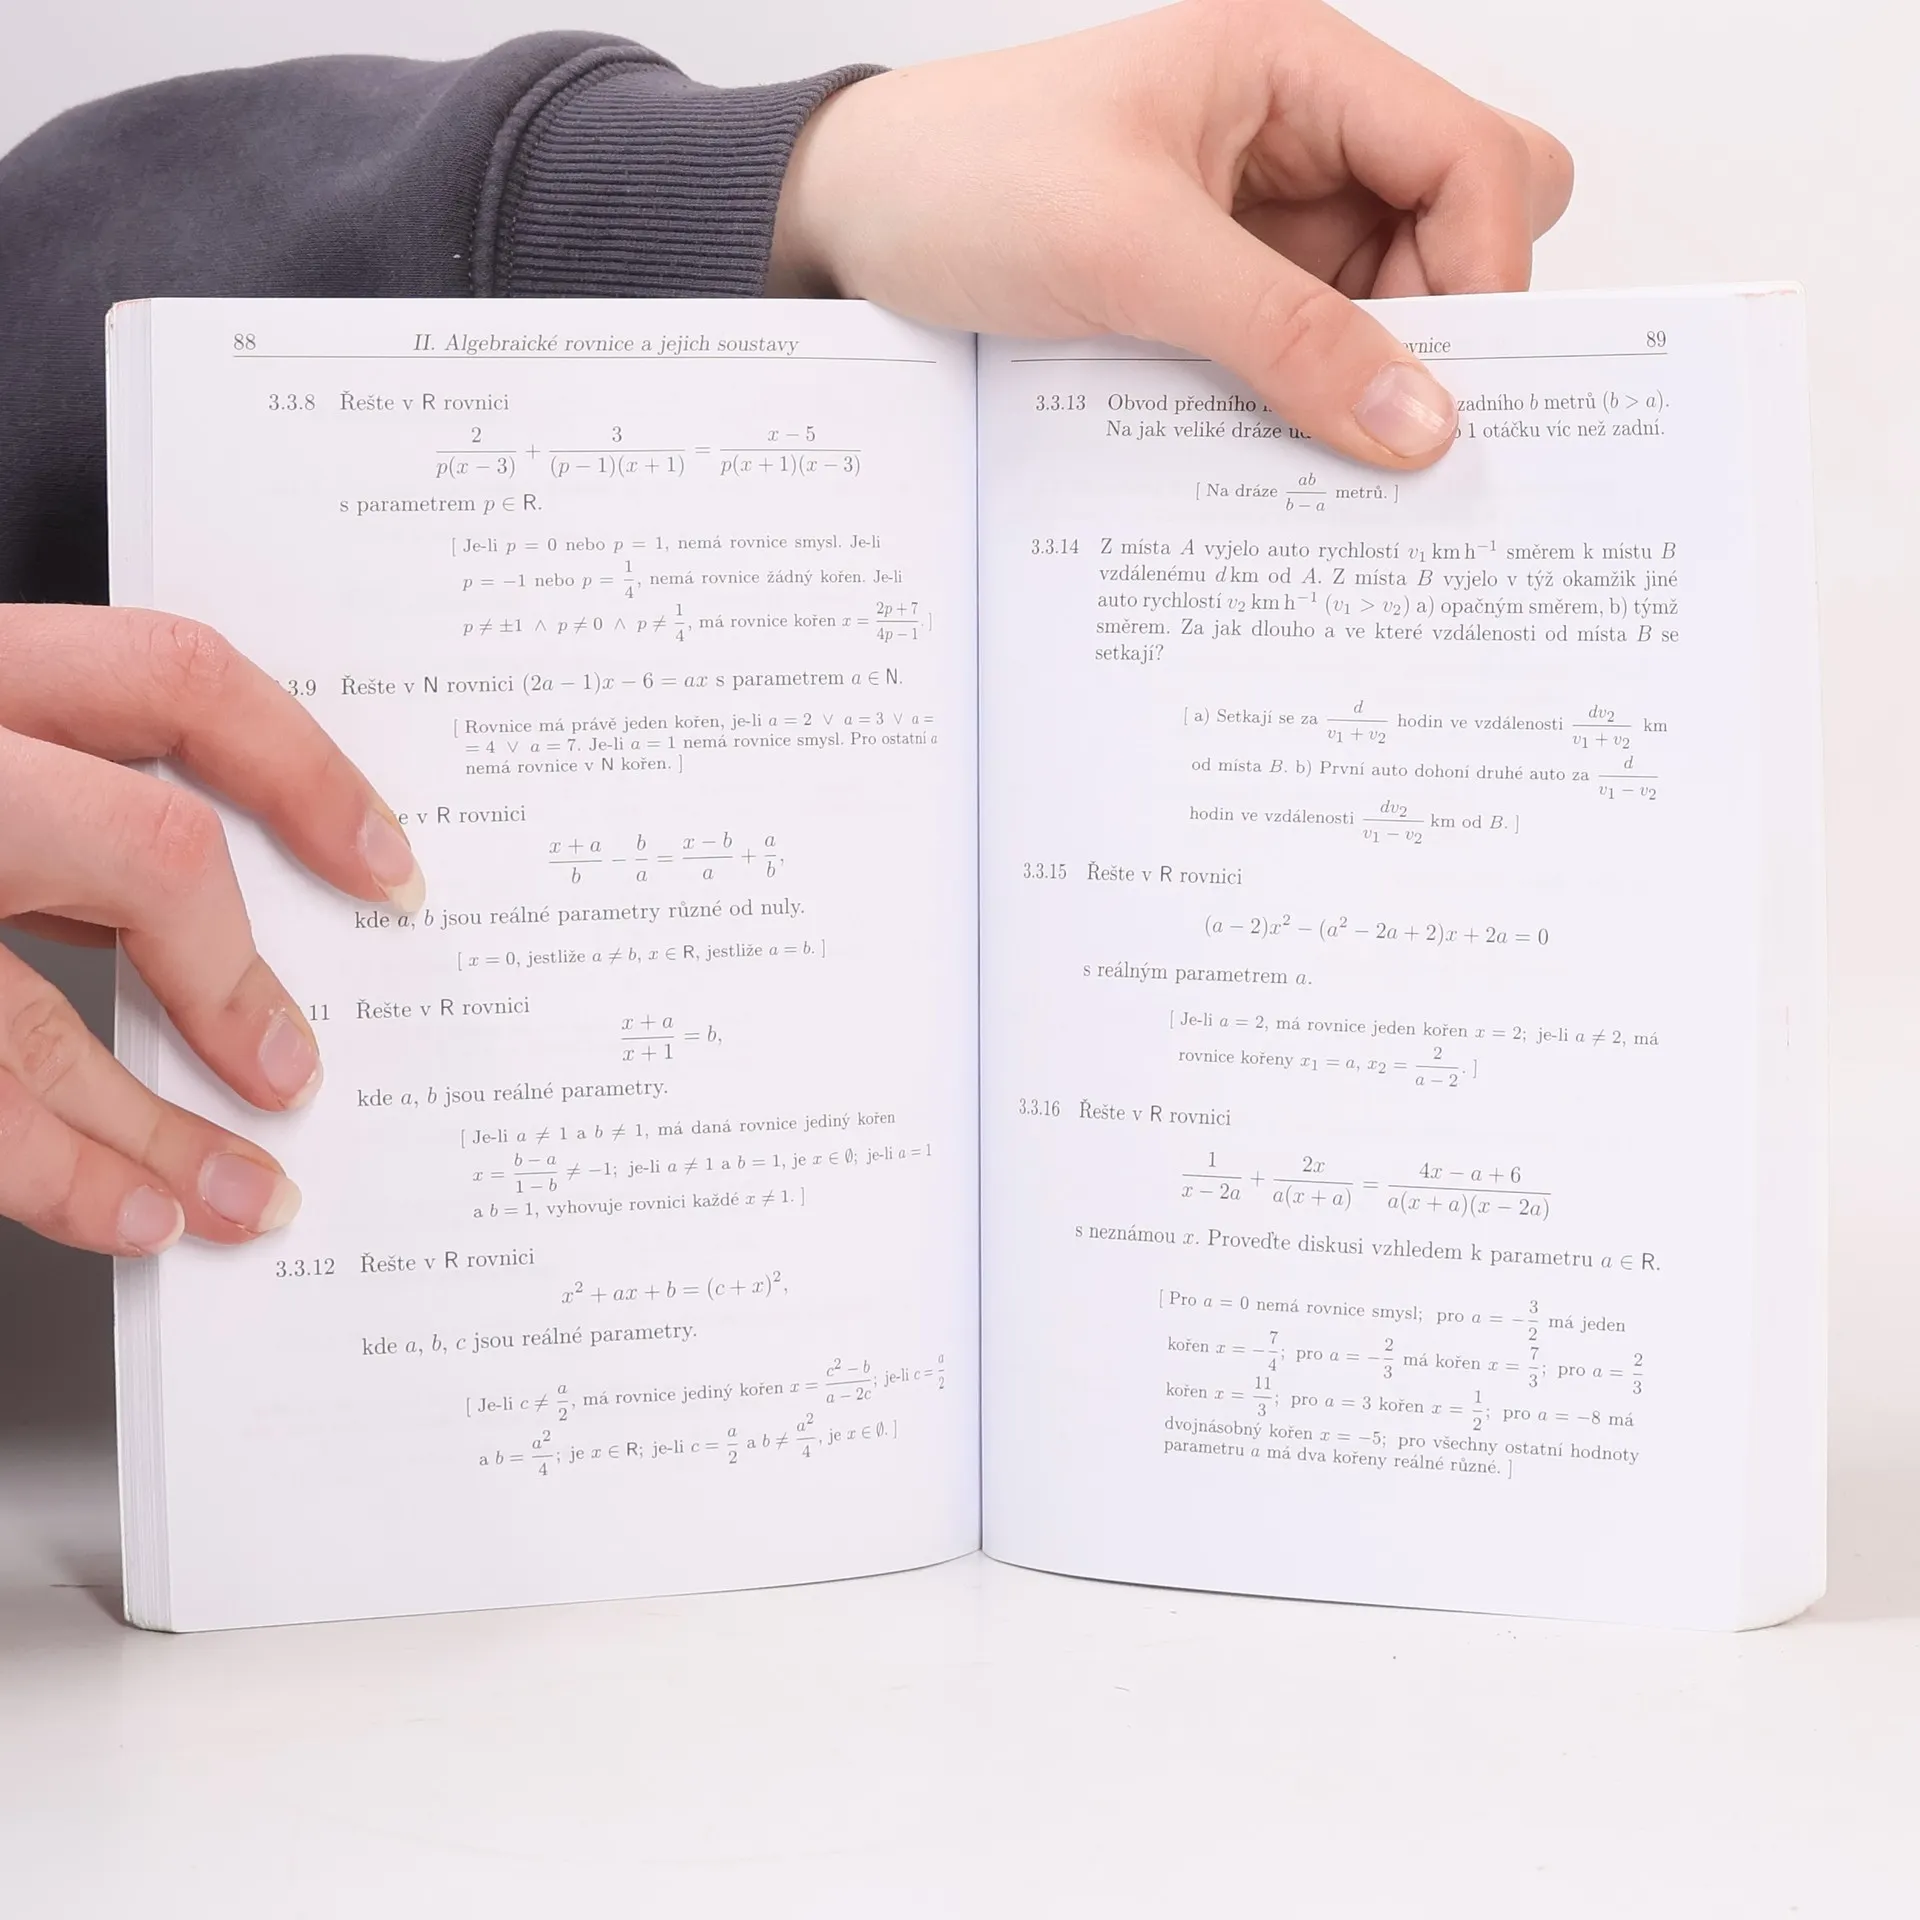 88 II. Algebraické rovnice a jejich soustavy
3.3.8 Řešte v R rovnici
2/(p(x − 3)) + 3/((p − 1)(x + 1)) = (x − 5)/(p(x + 1)(x − 3))
s parametrem p ∈ R.
[ Je-li p = 0 nebo p = 1, nemá rovnice smysl. Je-li
p = −1 nebo p = 1/4, nemá rovnice žádný kořen. Je-li
p ≠ ±1 ∧ p ≠ 0 ∧ p ≠ 1/4, má rovnice kořen x = (2p + 7)/(4p − 1). ]
3.9 Řešte v N rovnici (2a − 1)x − 6 = ax s parametrem a ∈ N.
[ Rovnice má právě jeden kořen, je-li a = 2 ∨ a = 3 ∨ a =
= 4 ∨ a = 7. Je-li a = 1 nemá rovnice smysl. Pro ostatní a
nemá rovnice v N kořen. ]
v R rovnici
(x + a)/b − b/a = (x − b)/a + a/b,
kde a, b jsou reálné parametry různé od nuly.
[ x = 0, jestliže a ≠ b, x ∈ R, jestliže a = b. ]
11 Řešte v R rovnici
(x + a)/(x + 1) = b,
kde a, b jsou reálné parametry.
[ Je-li a ≠ 1 a b ≠ 1, má daná rovnice jediný kořen
x = (b − a)/(1 − b) ≠ −1; je-li a ≠ 1 a b = 1, je x ∈ ∅; je-li a = 1
a b = 1, vyhovuje rovnici každé x ≠ 1. ]
3.3.12 Řešte v R rovnici
x² + ax + b = (c + x)²,
kde a, b, c jsou reálné parametry.
[ Je-li c ≠ a/2, má rovnice jediný kořen x = (c² − b)/(a − 2c); je-li c = a/2
a b = a²/4; je x ∈ R; je-li c = a/2 a b ≠ a²/4, je x ∈ ∅. ]
89
3.3.13 Obvod předního zadního b metrů (b > a).
Na jak veliké dráze 1 otáčku víc než zadní.
[ Na dráze ab/(b − a) metrů. ]
3.3.14 Z místa A vyjelo auto rychlostí v₁ km h⁻¹ směrem k místu B
vzdálenému d km od A. Z místa B vyjelo v týž okamžik jiné
auto rychlostí v₂ km h⁻¹ (v₁ > v₂) a) opačným směrem, b) týmž
směrem. Za jak dlouho a ve které vzdálenosti od místa B se
setkají?
[ a) Setkají se za d/(v₁ + v₂) hodin ve vzdálenosti dv₂/(v₁ + v₂) km
od místa B. b) První auto dohoní druhé auto za d/(v₁ − v₂)
hodin ve vzdálenosti dv₂/(v₁ − v₂) km od B. ]
3.3.15 Řešte v R rovnici
(a − 2)x² − (a² − 2a + 2)x + 2a = 0
s reálným parametrem a.
[ Je-li a = 2, má rovnice jeden kořen x = 2; je-li a ≠ 2, má
rovnice kořeny x₁ = a, x₂ = 2/(a − 2). ]
3.3.16 Řešte v R rovnici
1/(x − 2a) + 2x/(a(x + a)) = (4x − a + 6)/(a(x + a)(x − 2a))
s neznámou x. Proveďte diskusi vzhledem k parametru a ∈ R.
[ Pro a = 0 nemá rovnice smysl; pro a = −3/2 má jeden
kořen x = −7/4; pro a = −2/3 má kořen x = 7/3; pro a = 2/3
kořen x = 11/3; pro a = 3 kořen x = 1/2; pro a = −8 má
dvojnásobný kořen x = −5; pro všechny ostatní hodnoty
parametru a má dva kořeny reálné různé. ]